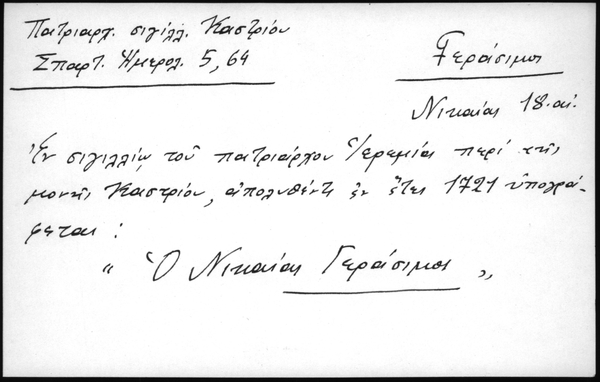 Πατριαρχ. σιγίλλ. Καστρίου
Σπαρτ. Ἡμερολ. 5, 64
Γεράσιμος
Νικαίας 18. αἰ.
Ἐν σιγιλλίῳ τοῦ πατριάρχου Ἱερεμία περί τῆς
μονῆς Καστρίου, ἀπολυθέντι ἐν ἔτει 1721 ὑπογρά-
φεται :
“ Ὁ Νικαίας Γεράσιμος „